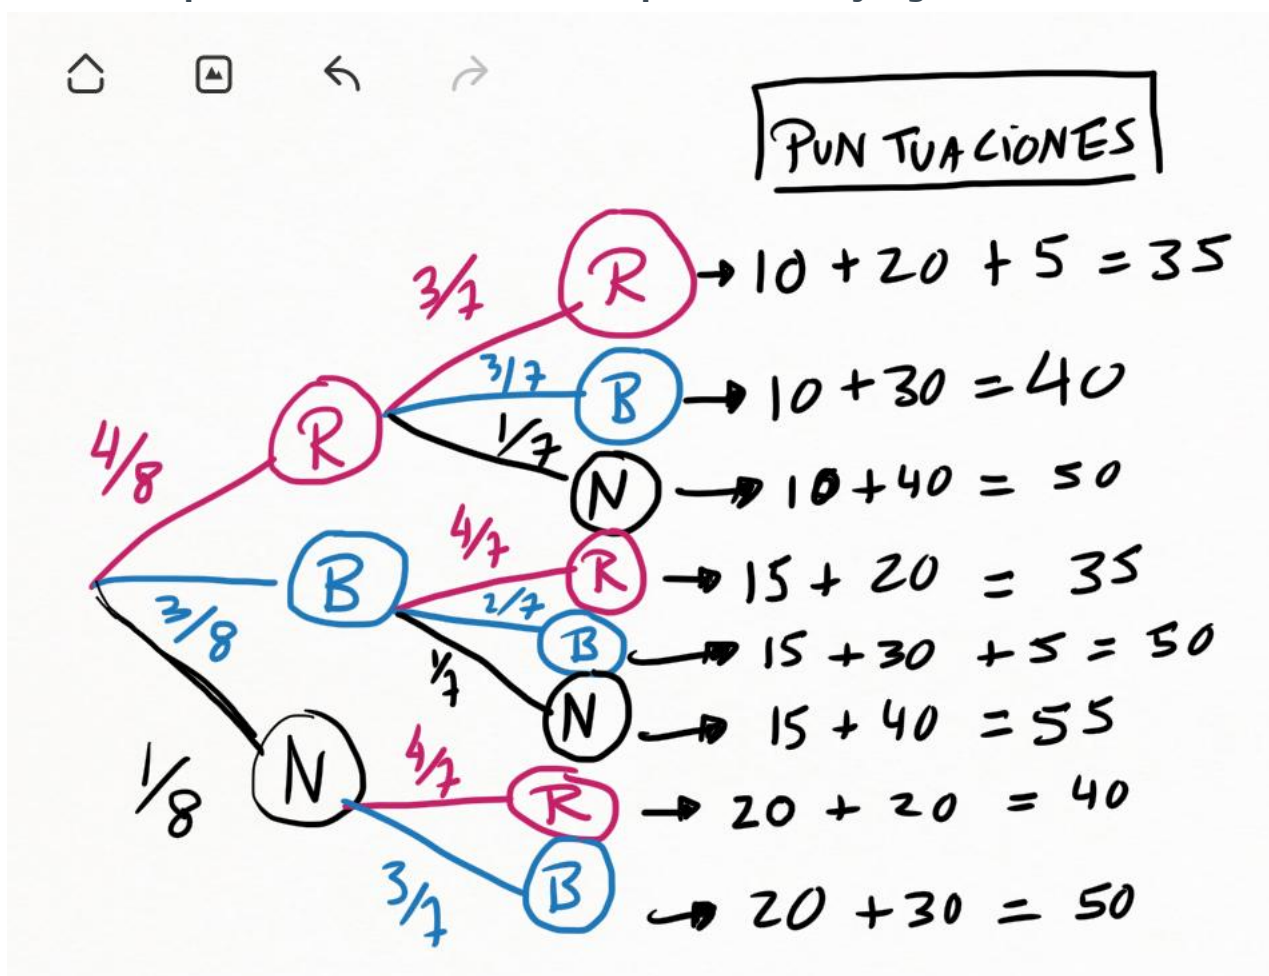 PUNTUACIONES
3/7 R → 10 + 20 + 5 = 35
3/7 B → 10 + 30 = 40
4/8 R 1/7 N → 10 + 40 = 50
4/7 R → 15 + 20 = 35
3/8 B 2/7 B → 15 + 30 + 5 = 50
1/7 N → 15 + 40 = 55
1/8 N 4/7 R → 20 + 20 = 40
3/7 B → 20 + 30 = 50